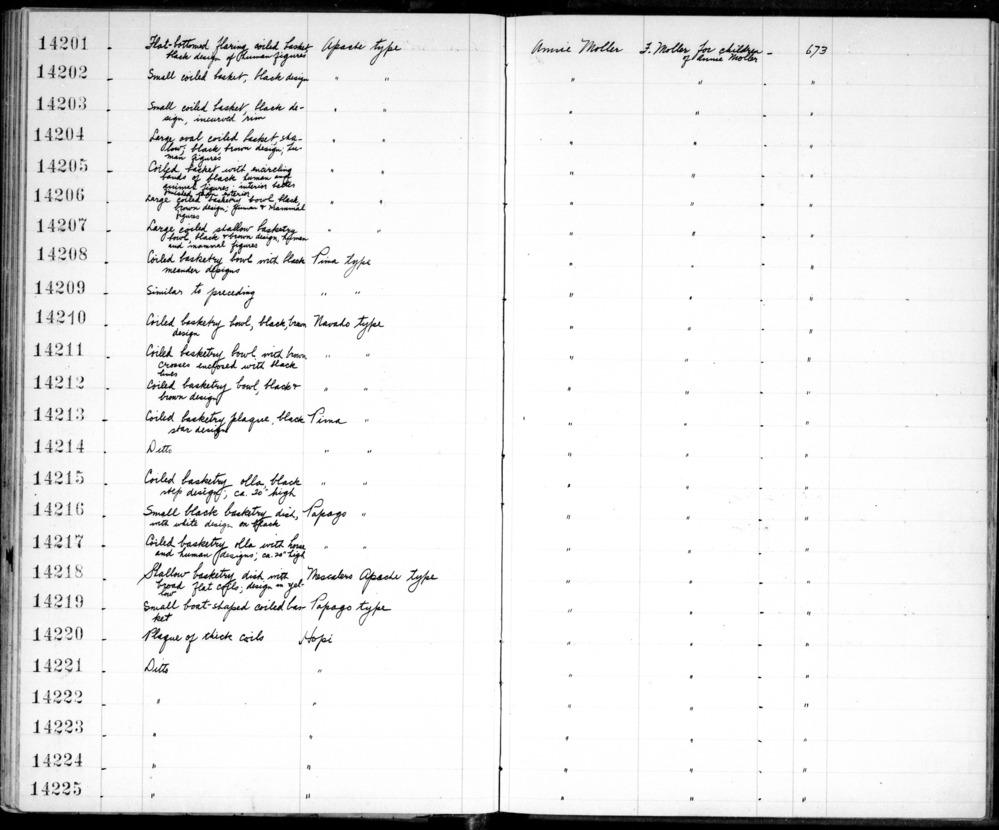 14201 - Flat-bottomed flaring coiled basket Apache type Annie Moller F. Moller for children - 673
black design of human figures of Annie Moller
14202 - Small coiled basket, black design " " " " - "
14203 - Small coiled basket, black de- " " " " - "
sign, incurved rim
14204 - Large oval coiled basket, shal- " " " " - "
low; black, brown design; hu-
man figures
14205 - Coiled basket with encircling " " " " - "
bands of black human and
animal figures; interior better
finished than exterior
14206 - Large coiled basketry bowl, black, " " " " - "
brown design; human & mammal
figures
14207 - Large coiled shallow basketry " " " " - "
bowl, black & brown design, human
and mammal figures
14208 - Coiled basketry bowl with black Pima type " " - "
meander designs
14209 - Similar to preceding " " " " - "
14210 - Coiled basketry bowl, black, brown Navaho type " " - "
design
14211 - Coiled basketry bowl with brown " " " " - "
crosses enclosed with black
lines
14212 - Coiled basketry bowl, black & " " " " - "
brown design
14213 - Coiled basketry plaque, black Pima " " " - "
star design
14214 - Ditto " " " " - "
14215 - Coiled basketry olla, black " " " " - "
step design; ca. 20" high
14216 - Small black basketry dish, Papago " " " - "
with white design on black
14217 - Coiled basketry olla with horse " " " " - "
and human designs; ca. 20" high
14218 - Shallow basketry dish with Mescalero Apache type " " - "
broad flat coils; design in yel-
low
14219 - Small boat-shaped coiled bas- Papago type " " - "
ket
14220 - Plaque of thick coils Hopi " " - "
14221 - Ditto " " " - "
14222 - " " " " - "
14223 - " " " " - "
14224 - " " " " - "
14225 - " " " " - "